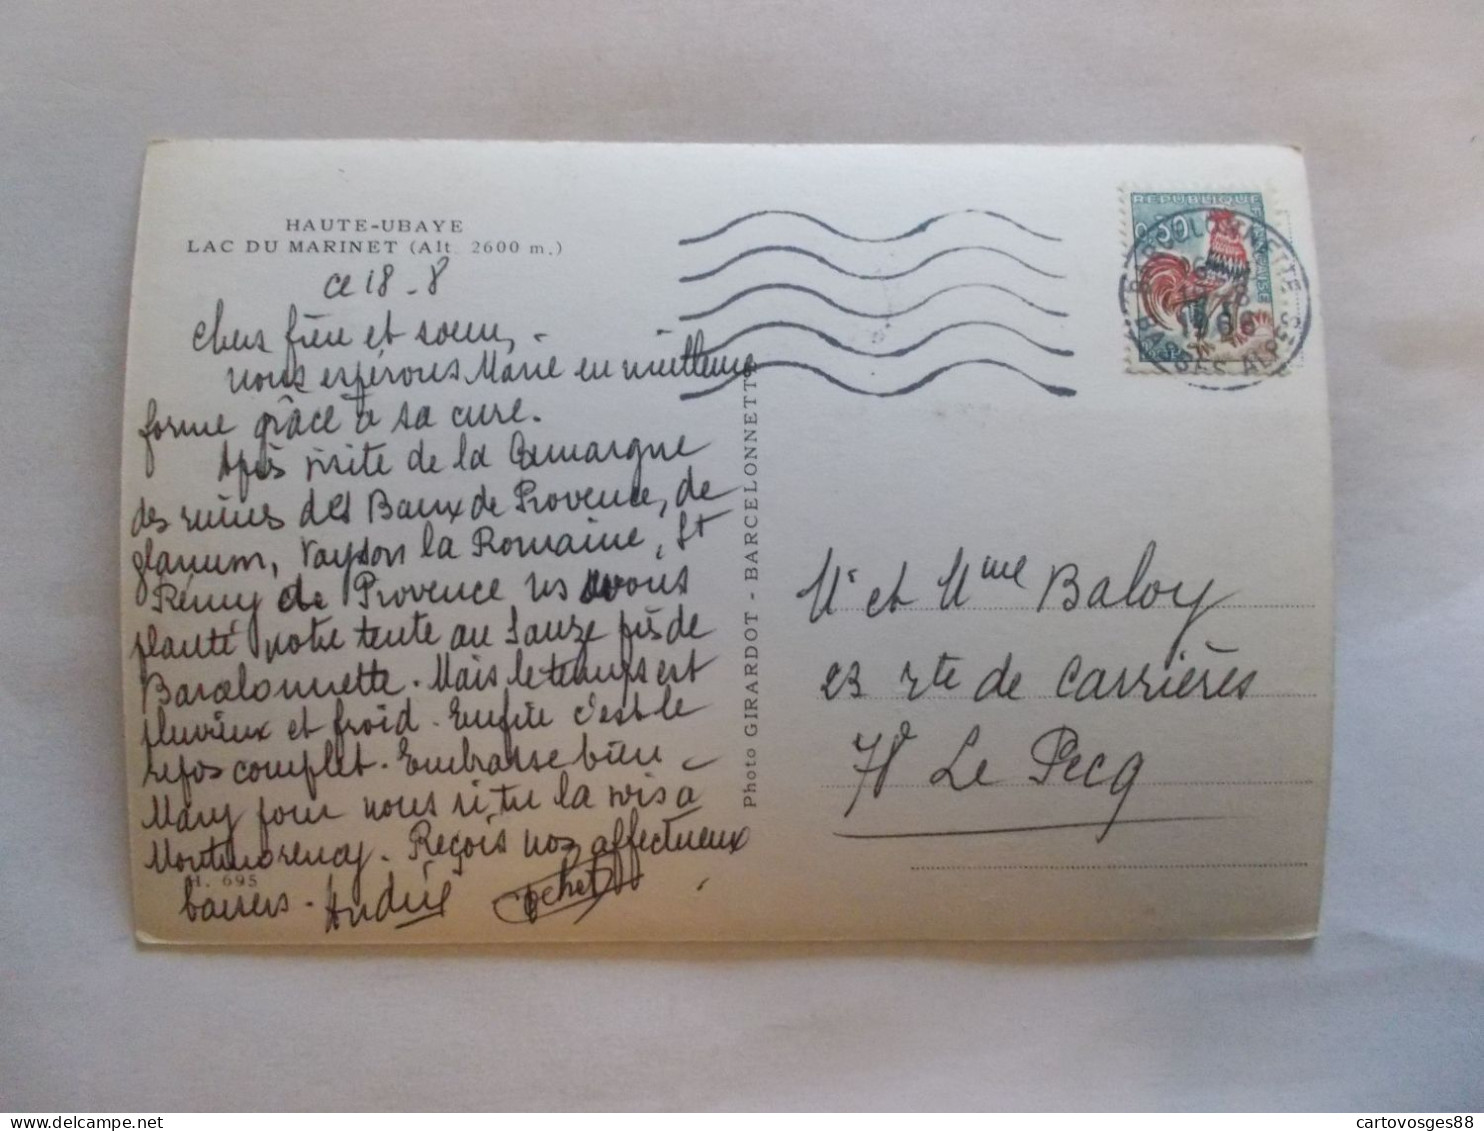 HAUTE-UBAYE
LAC DU MARINET (Alt. 2600 m.)
ce 18-8
Chers frère et soeur, -
nous espérons Marie en meilleure
forme grâce à sa cure.
Après visite de la Camargue
des ruines des Baux de Provence, de
glanum, Vayson la Romaine, St
Rémy de Provence ns avons
planté notre tente au Sauze près de
Barcelonnette. Mais le temps est
pluvieux et froid. Enfin c'est le
repos complet. Embrasse bien
Mary pour nous si tu la vois à
Montmorency. Reçois nos affectueux
baisers. Andrée
H. 695
Photo GIRARDOT - BARCELONNETTE
REPUBLIQUE FRANÇAISE
0,30
BARCELONNETTE
18-8
1966
BASSES ALPES
Mr et Mme Baloy
23 rte de Carrières
78 Le Pecq
cartovosges88